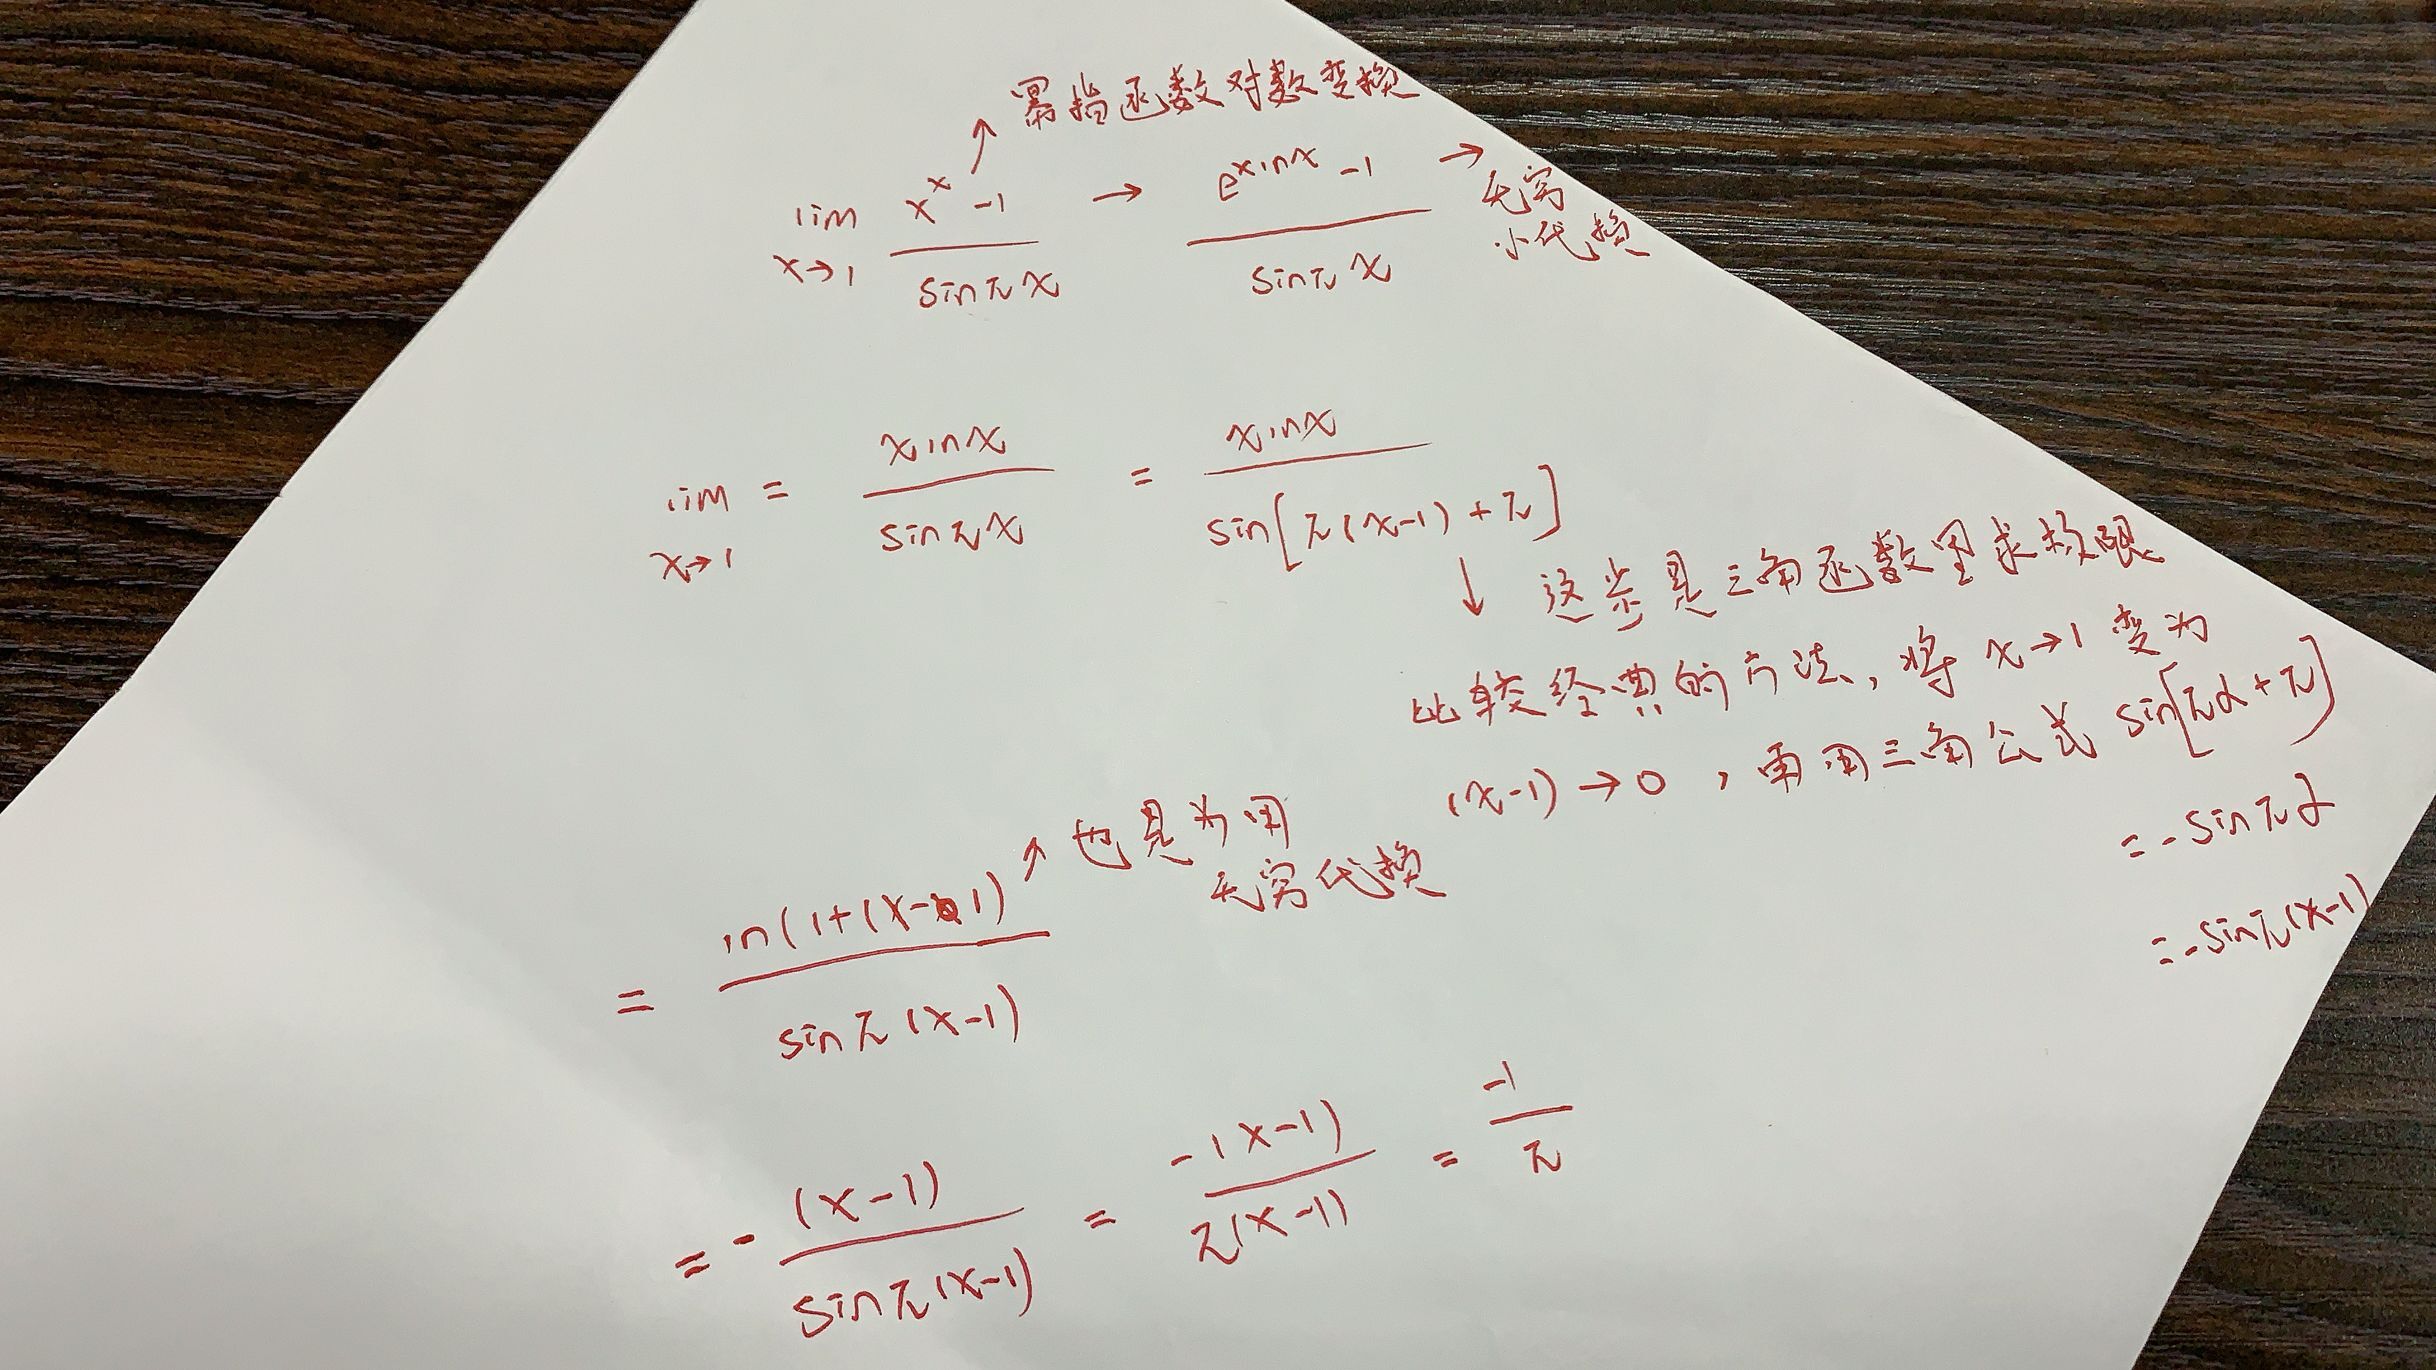 幂指函数对数变换
lim x→1 (x^x -1)/(sinπx) → (e^(xlnx) -1)/(sinπx) → 无穷
小代换
lim x→1 = (xlnx)/(sinπx) = (xlnx)/(sin[π(x-1)+π])
↓ 这步是三角函数里求极限
比较经典的方法, 将 x→1 变为
(x-1)→0, 再用三角公式 sin[πα+π]
=-sinπα
=-sinπ(x-1)
↗ 也是为用
无穷代换
= ln(1+(x-1)/(sinπ(x-1))
= -(x-1)/(sinπ(x-1)) = -(x-1)/(π(x-1)) = -1/π